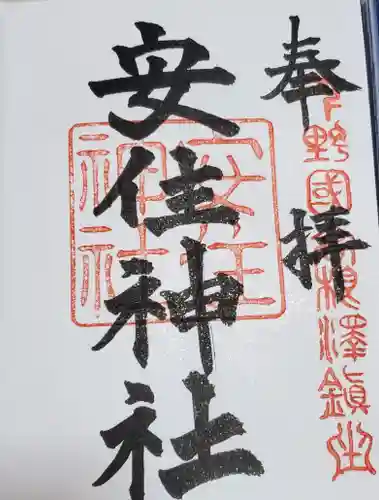 奉拝
下野國根澤鎮座
安住神社
安住神社